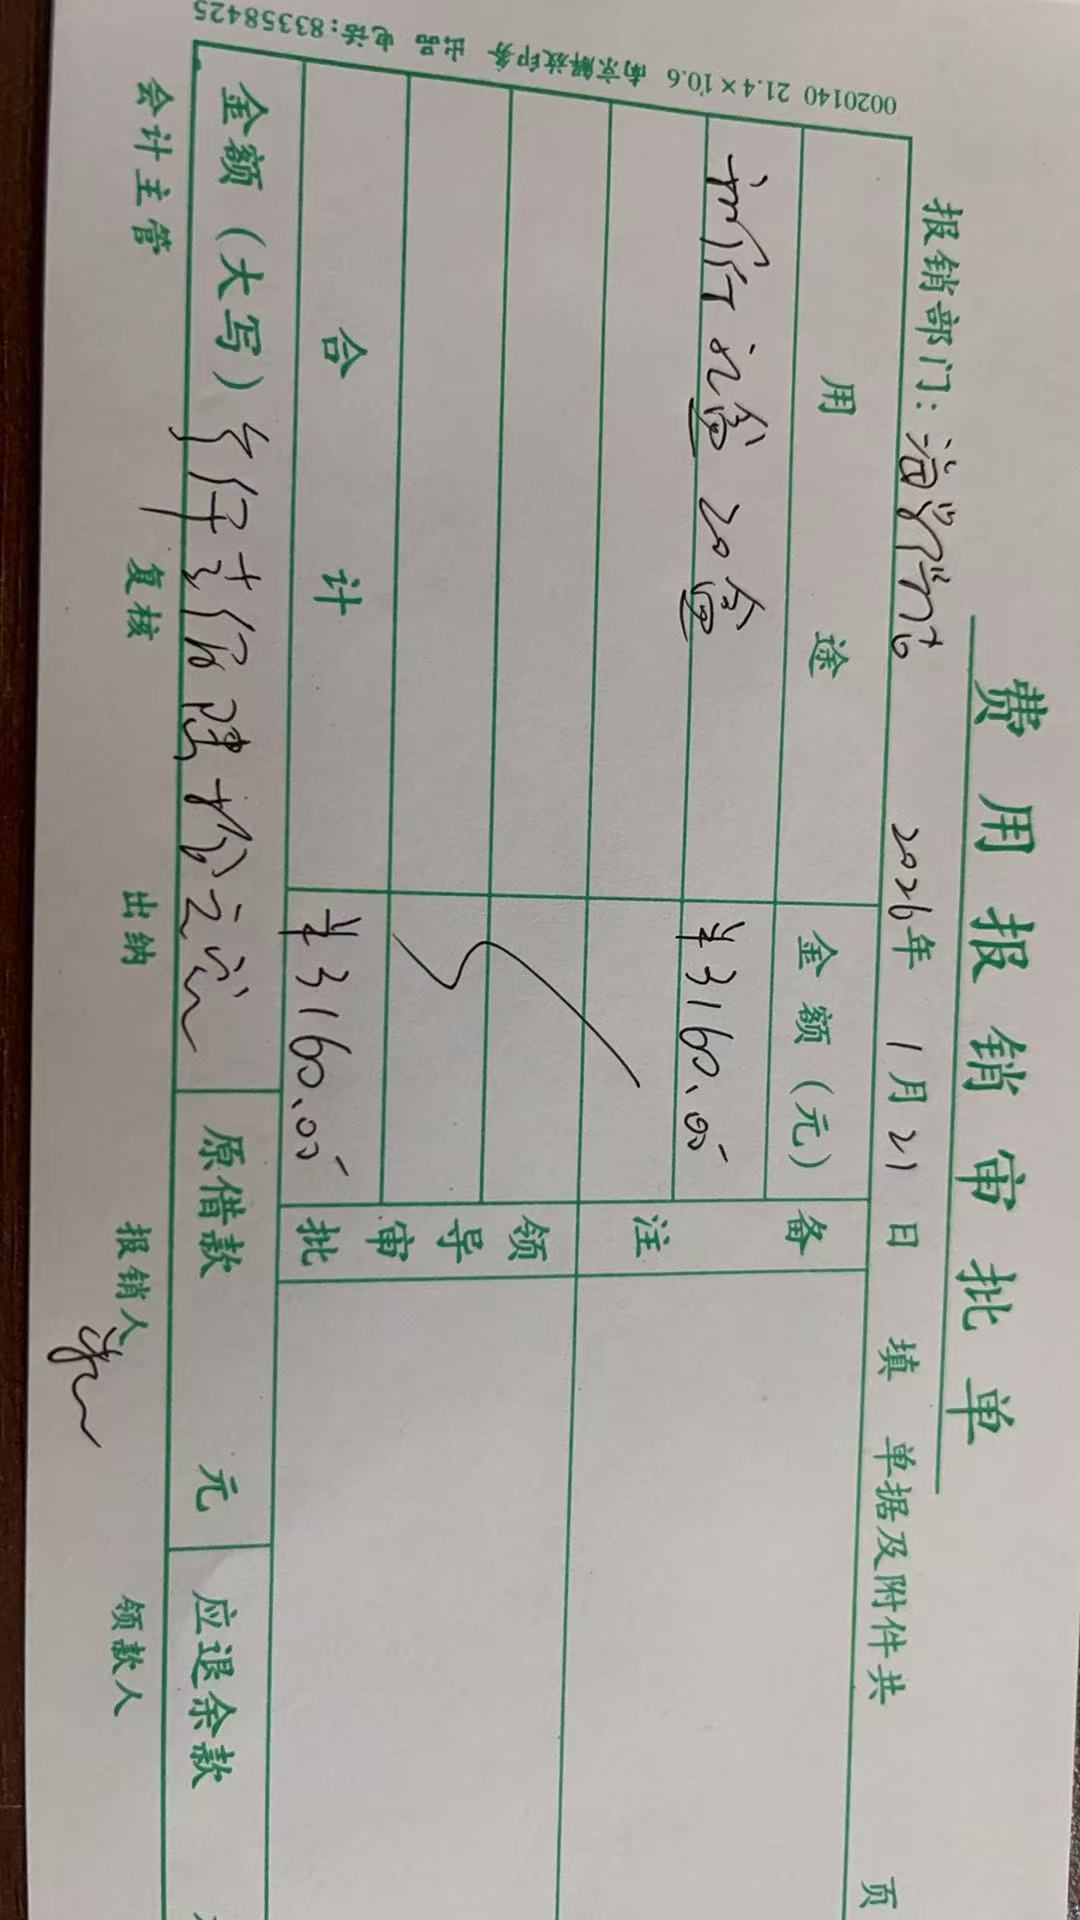 费用报销审批单
报销部门: 2026年 1月21日 填 单据及附件共 页
用途 金额(元) 备注
20盒 ¥3160.00
领导审批
合计 ¥3160.00
金额(大写) 叁仟壹佰陆十 元 原借款 元 应退余款
会计主管 复核 出纳 报销人 领款人
0020140 21.4×10.6 南京解放印务 出品 电话:83358425